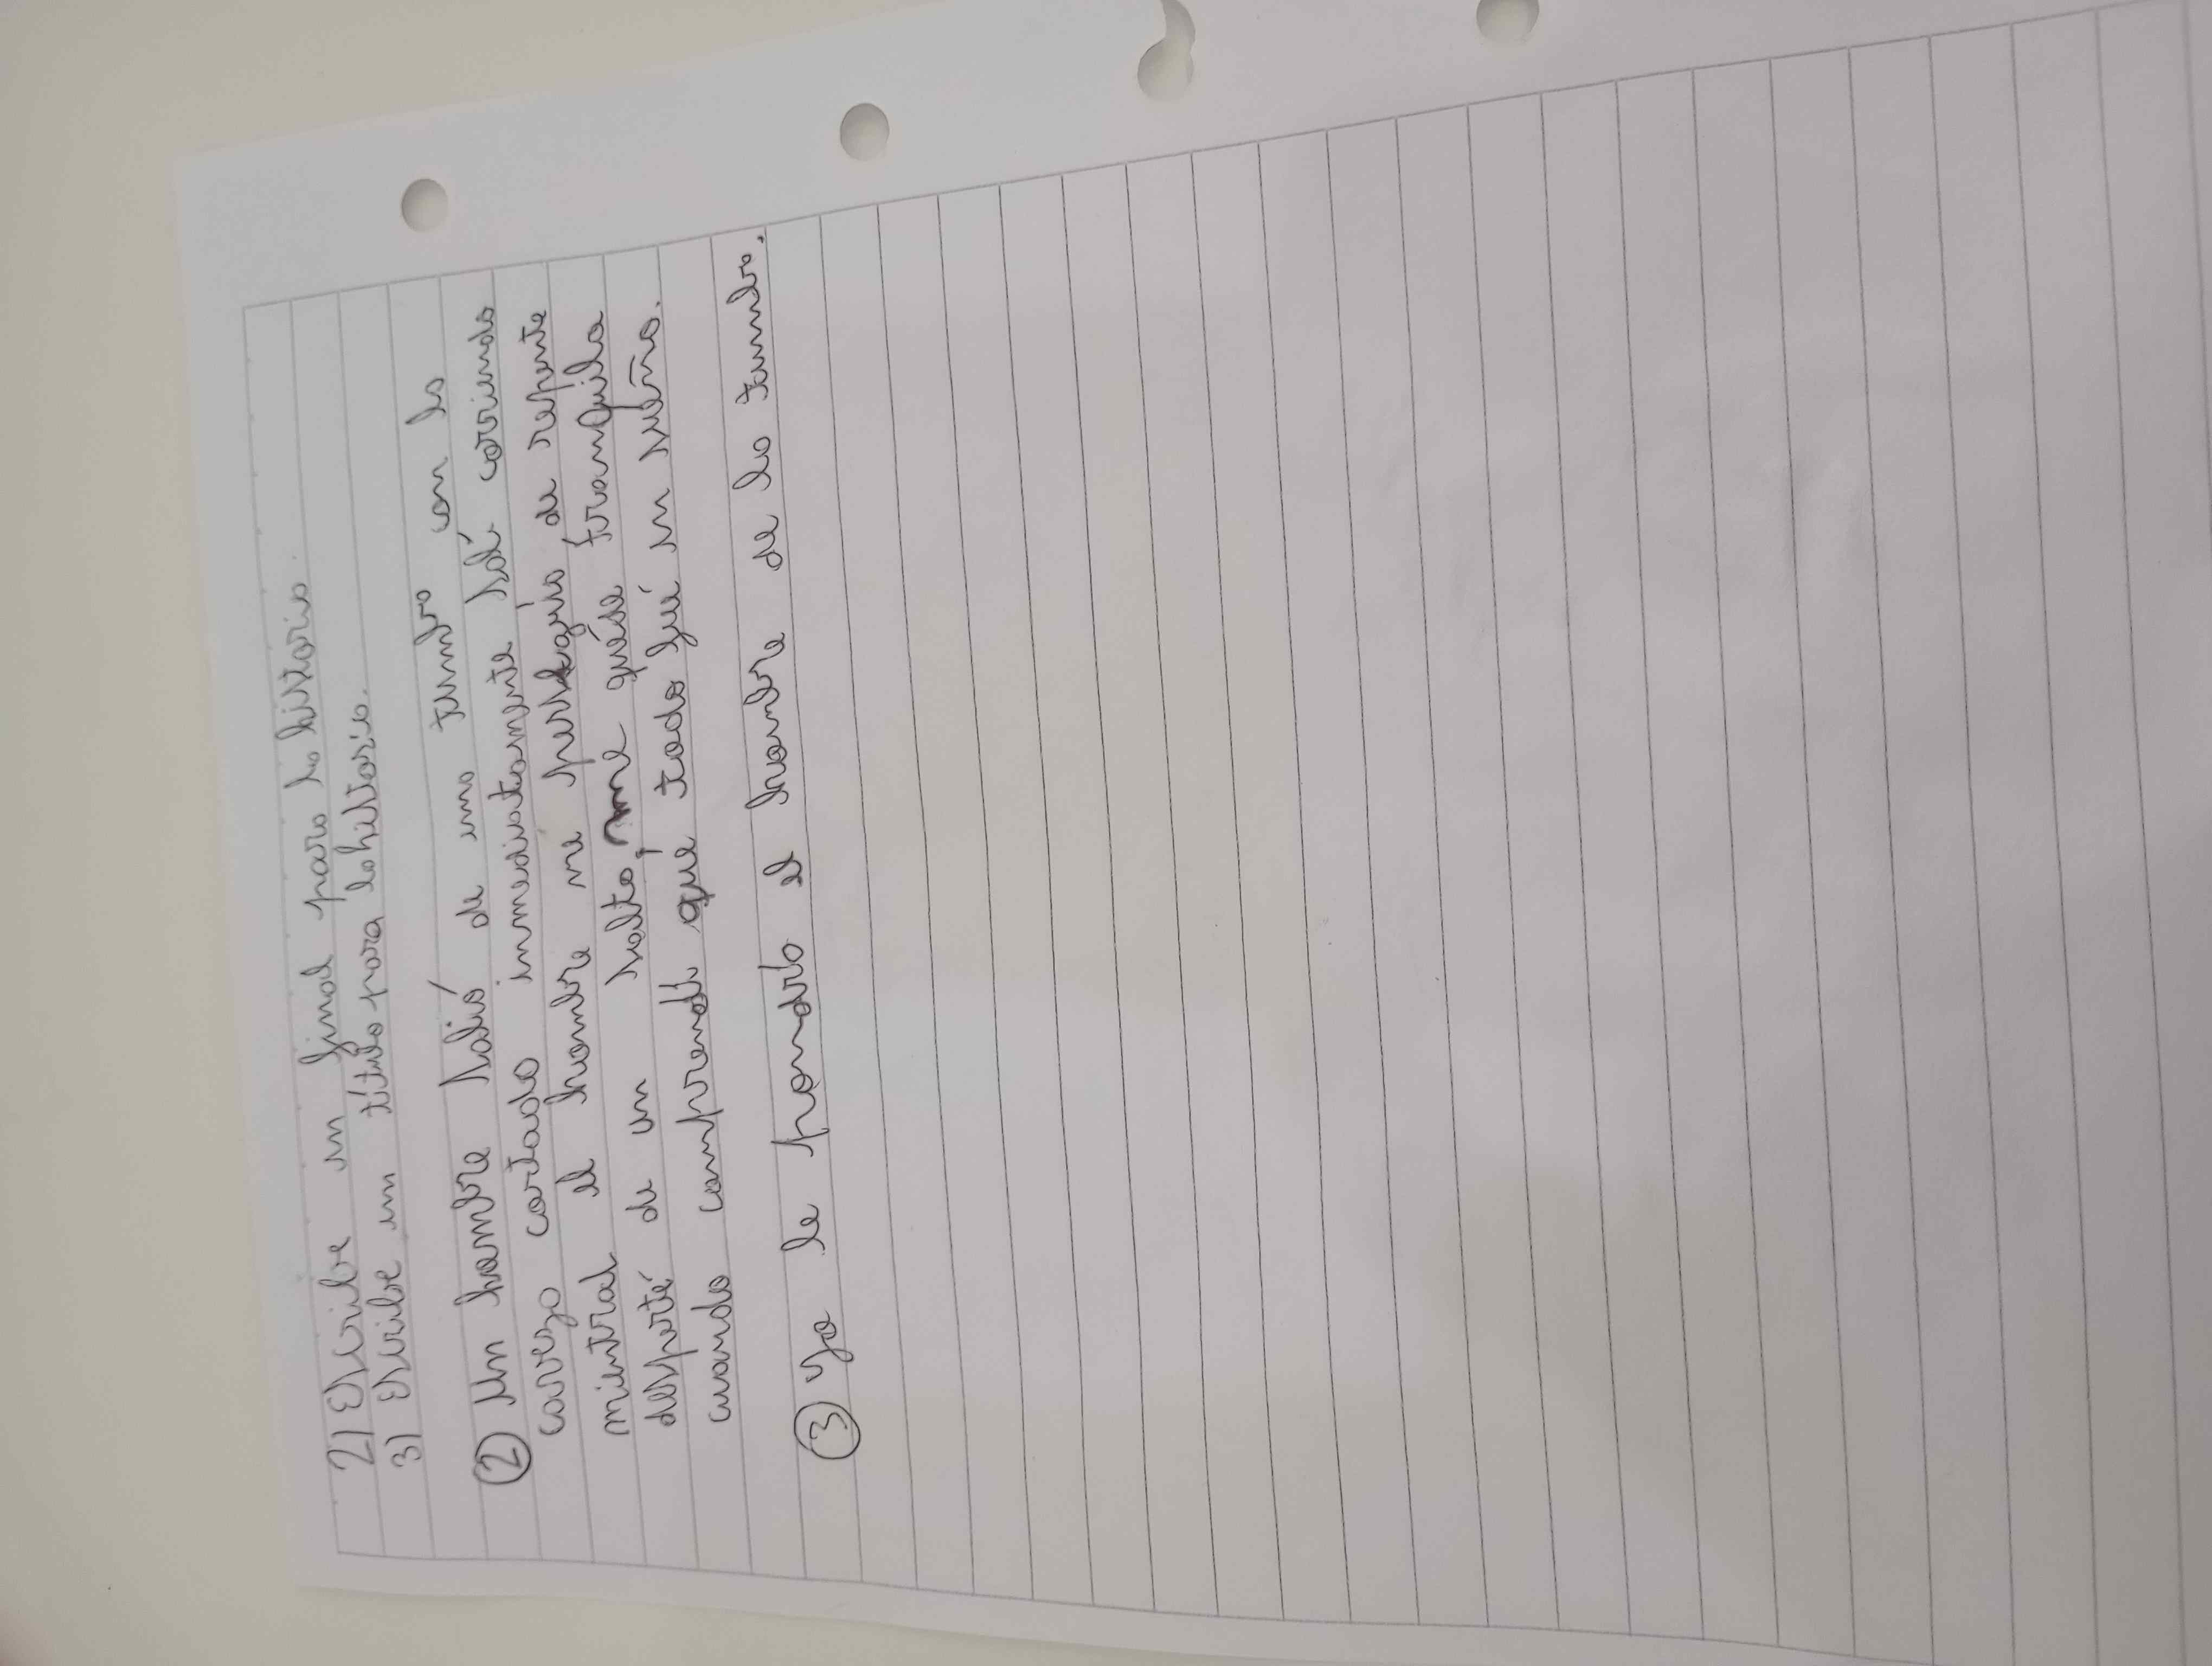 2) Escribe un final para la historia.
3) Escribe un título para la historia.
② Un hombre salió de una tumba con la
caveza cortada inmediatamente salí corriendo
mientras el hombre me perseguía de repente
desperté de un salto, me quéde tranquila
cuando comprendí que todo fué un sueño.
③ Yo le pondría el hombre de la tumba.